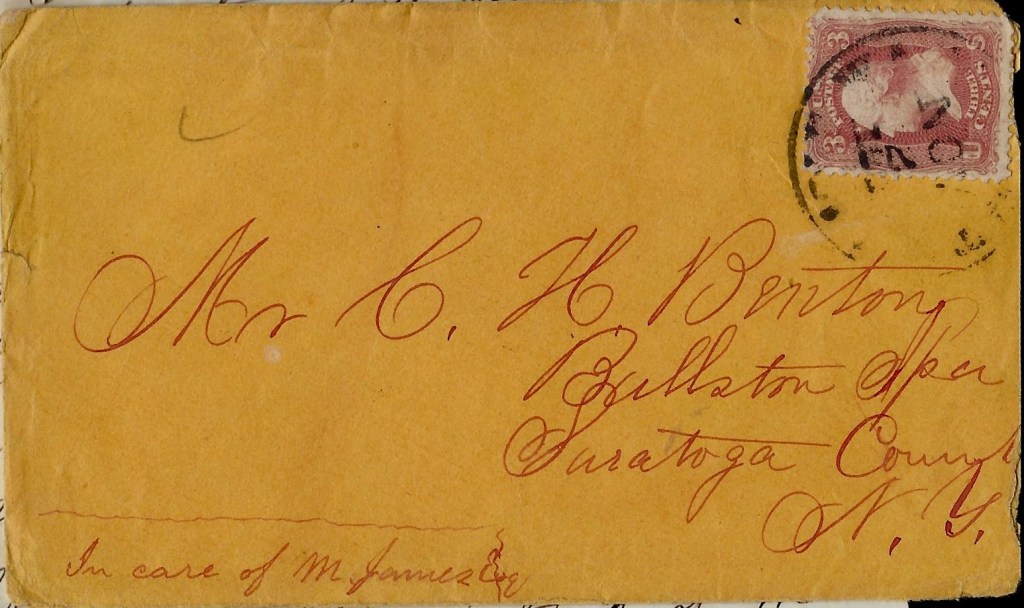 3 3
U.S. POSTAGE
THREE CENTS
NO
Mr C. H. Benton,
Ballston Spa
Saratoga County
N. Y.
In care of M. James Esq